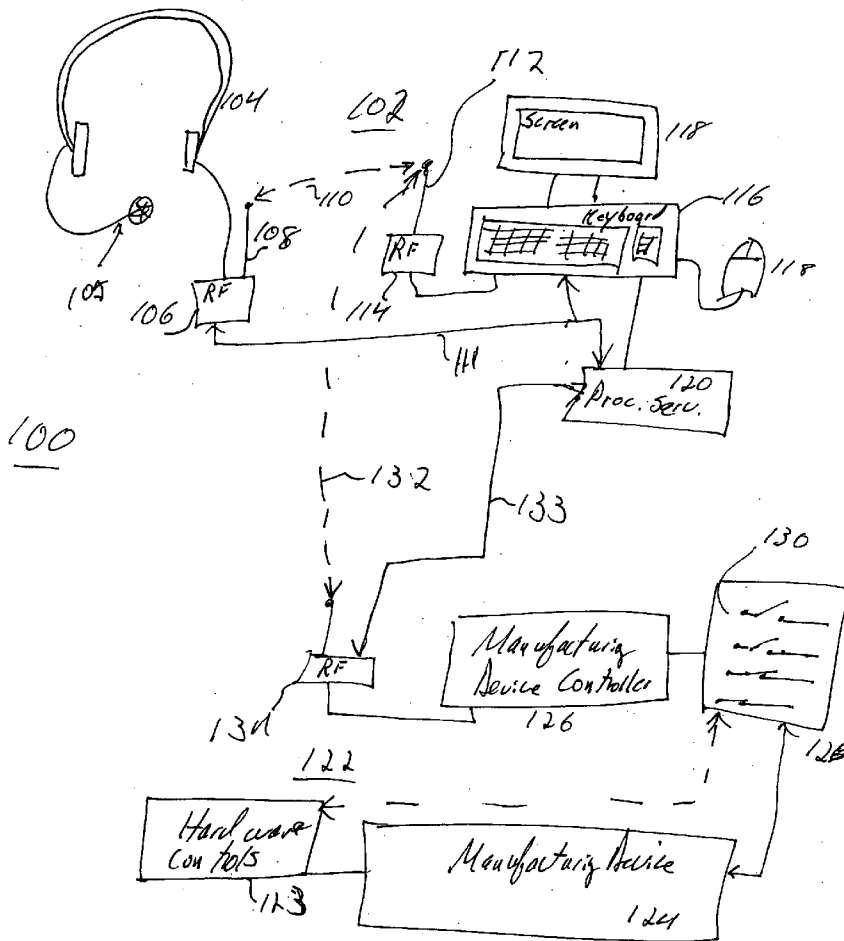 104
102
112
Screen
118
110
116
Keyboard
105
108
RF
106
RF
114
118
111
120
Proc. Serv.
100
132
133
130
Manufacturing
Device Controller
126
RF
134
128
122
Hardware
Controls
123
Manufacturing Device
124